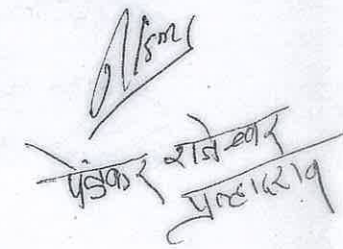 पेंडकर राजेश्वर
प्रल्हादराव